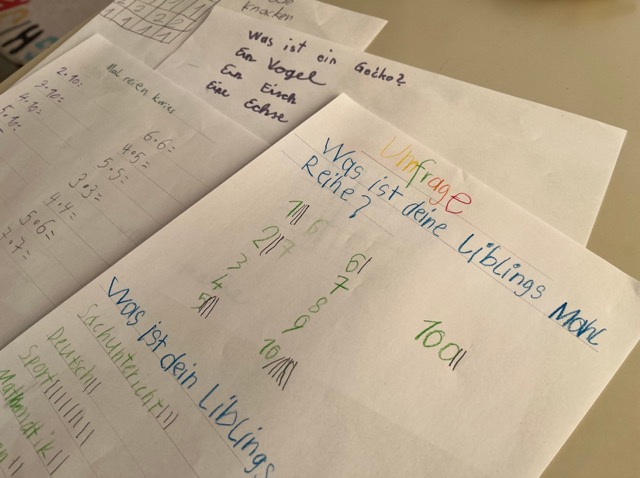 knacken
Was ist ein Gecko?
Ein Vogel
Ein Fisch
Eine Echse
2·10=
3·10=
4·10=
5·10=
6·6=
4·5=
5·5=
3·3=
4·4=
5·6=
7·7=
Umfrage
Was ist deine Liblings Mahl
Reihe?
1
2
3
4
5
6
7
8
9
10
100
Was ist dein Liblings
Sachunterricht
Deutsch
Sport
Mathematik